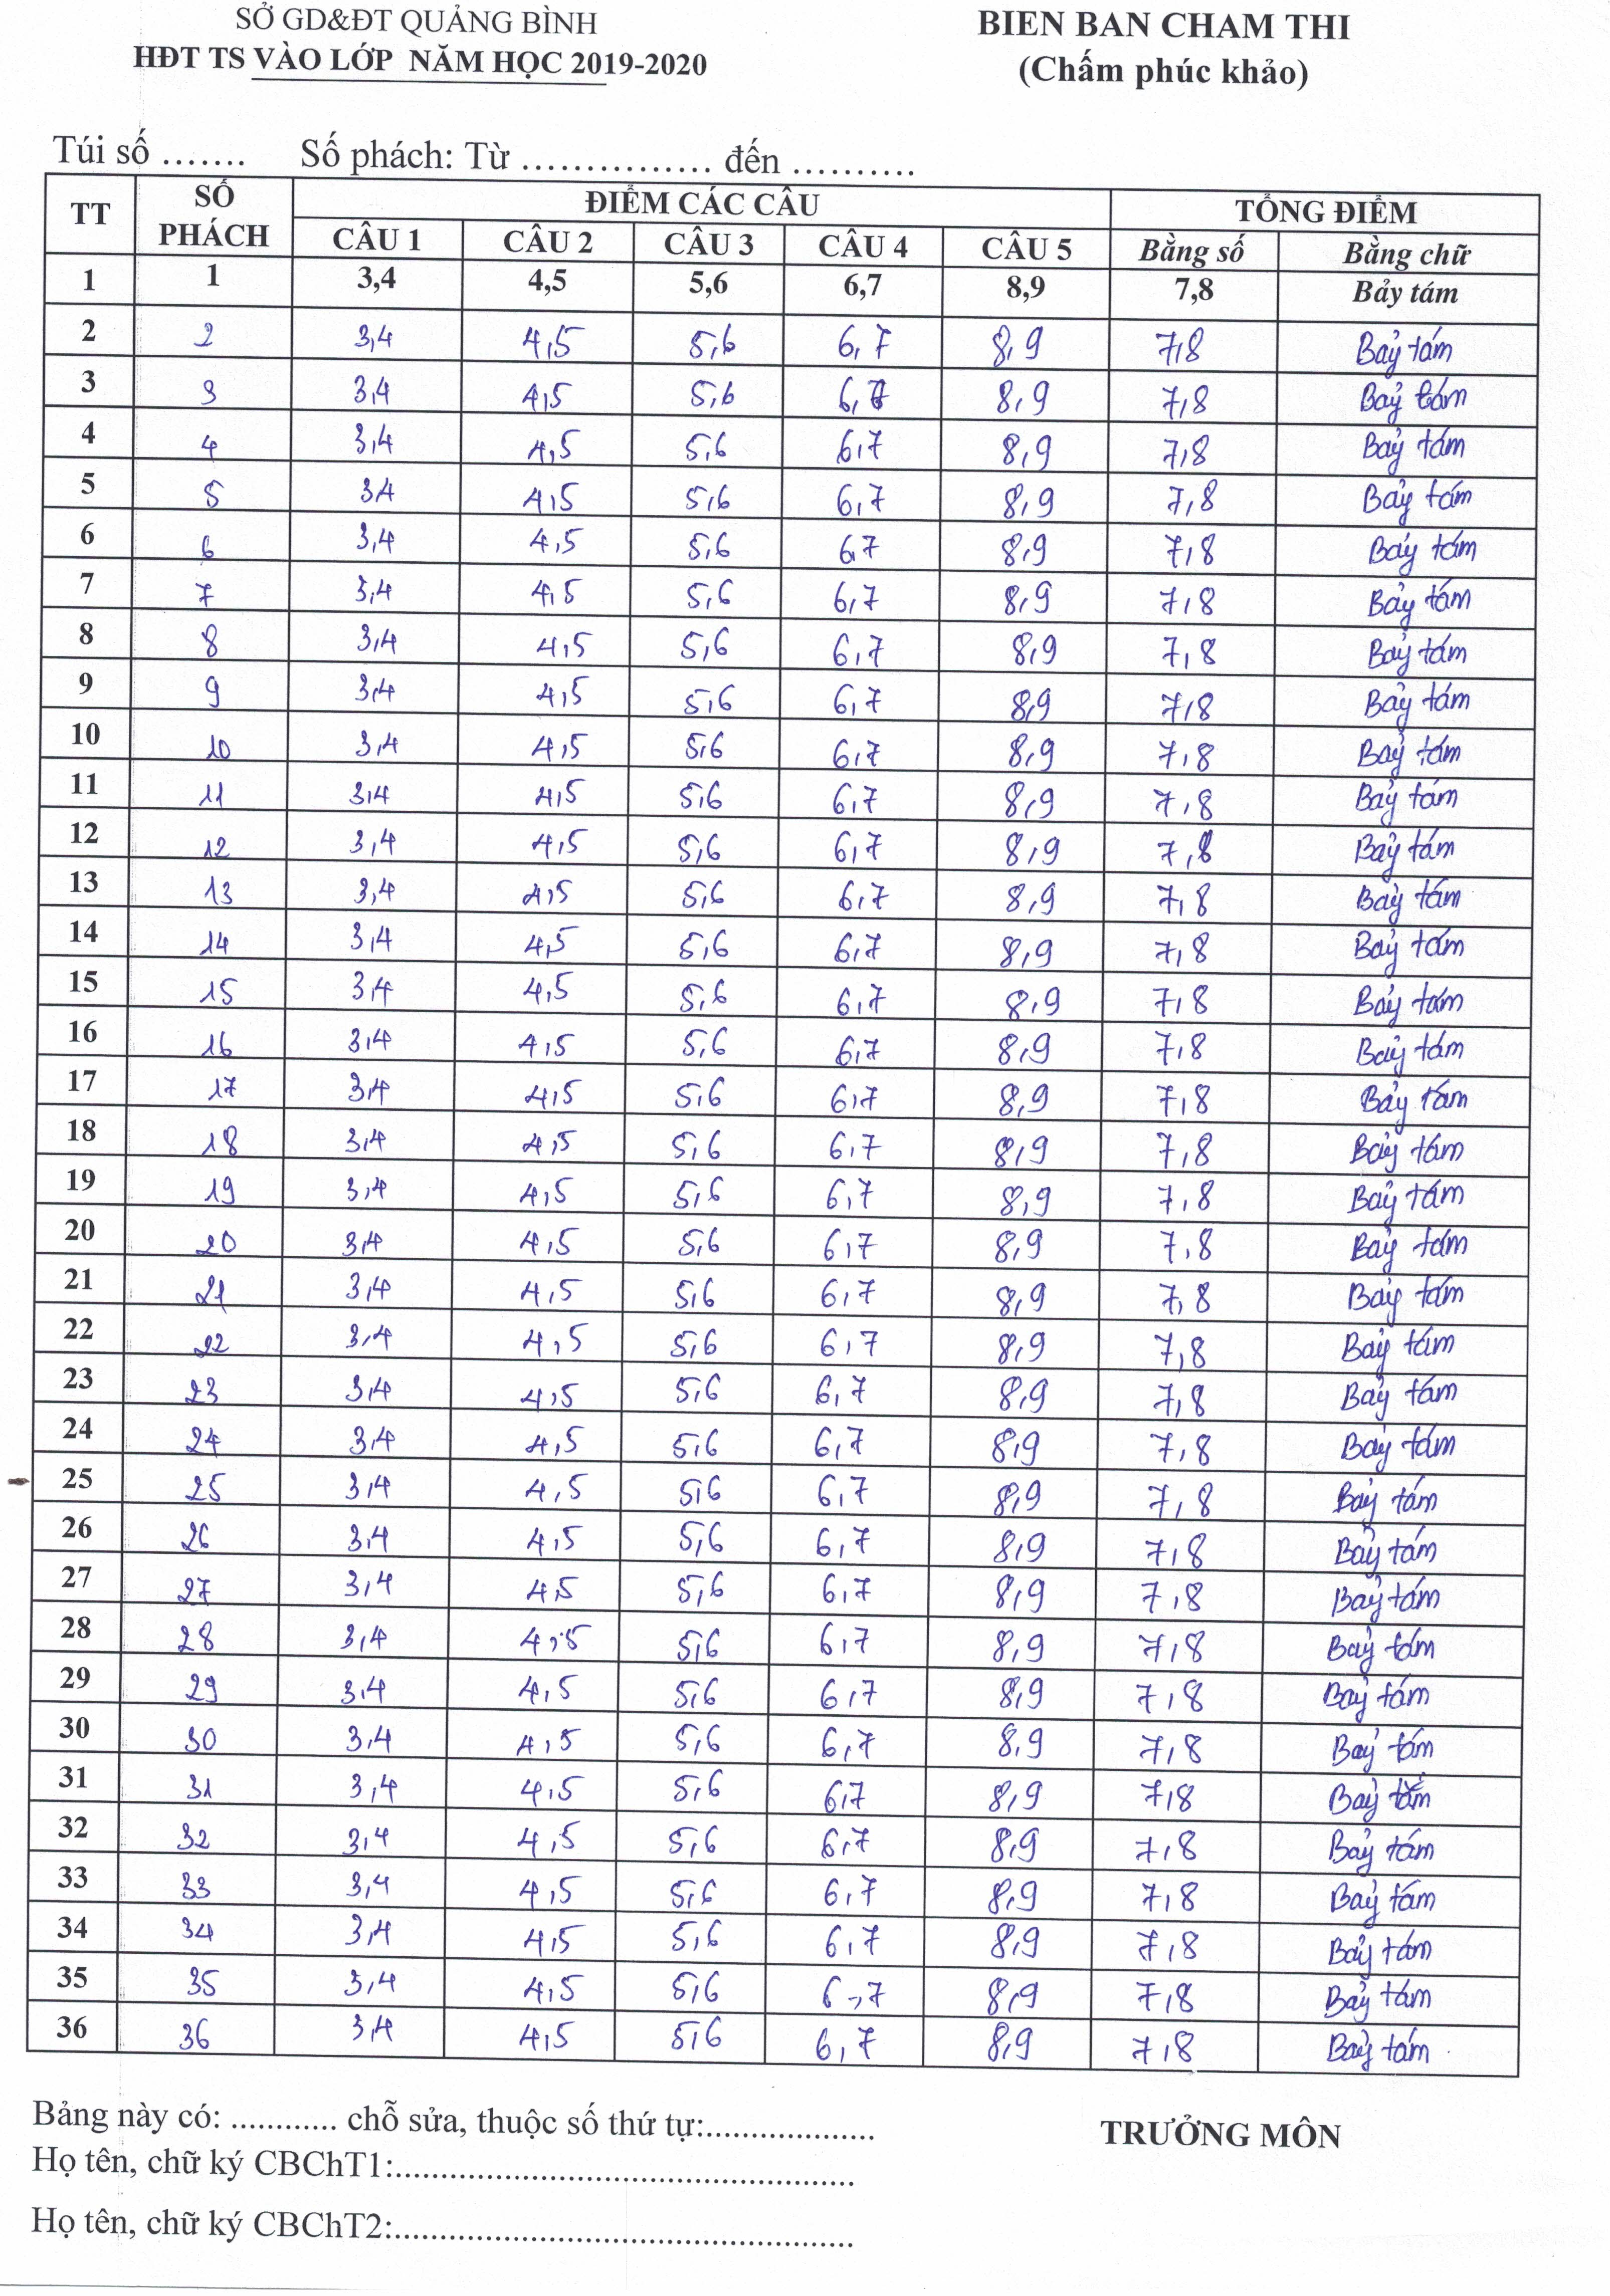 SỞ GD&ĐT QUẢNG BÌNH
HĐT TS VÀO LỚP NĂM HỌC 2019-2020
BIEN BAN CHAM THI
(Chấm phúc khảo)
Túi số ....... Số phách: Từ ............... đến ..........
TT SỐ PHÁCH ĐIỂM CÁC CÂU TỔNG ĐIỂM
CÂU 1 CÂU 2 CÂU 3 CÂU 4 CÂU 5 Bằng số Bằng chữ
1 1 3,4 4,5 5,6 6,7 8,9 7,8 Bảy tám
2 2 3,4 4,5 5,6 6,7 8,9 7,8 Bảy tám
3 3 3,4 4,5 5,6 6,7 8,9 7,8 Bảy tám
4 4 3,4 4,5 5,6 6,7 8,9 7,8 Bảy tám
5 5 3,4 4,5 5,6 6,7 8,9 7,8 Bảy tám
6 6 3,4 4,5 5,6 6,7 8,9 7,8 Bảy tám
7 7 3,4 4,5 5,6 6,7 8,9 7,8 Bảy tám
8 8 3,4 4,5 5,6 6,7 8,9 7,8 Bảy tám
9 9 3,4 4,5 5,6 6,7 8,9 7,8 Bảy tám
10 10 3,4 4,5 5,6 6,7 8,9 7,8 Bảy tám
11 11 3,4 4,5 5,6 6,7 8,9 7,8 Bảy tám
12 12 3,4 4,5 5,6 6,7 8,9 7,8 Bảy tám
13 13 3,4 4,5 5,6 6,7 8,9 7,8 Bảy tám
14 14 3,4 4,5 5,6 6,7 8,9 7,8 Bảy tám
15 15 3,4 4,5 5,6 6,7 8,9 7,8 Bảy tám
16 16 3,4 4,5 5,6 6,7 8,9 7,8 Bảy tám
17 17 3,4 4,5 5,6 6,7 8,9 7,8 Bảy tám
18 18 3,4 4,5 5,6 6,7 8,9 7,8 Bảy tám
19 19 3,4 4,5 5,6 6,7 8,9 7,8 Bảy tám
20 20 3,4 4,5 5,6 6,7 8,9 7,8 Bảy tám
21 21 3,4 4,5 5,6 6,7 8,9 7,8 Bảy tám
22 22 3,4 4,5 5,6 6,7 8,9 7,8 Bảy tám
23 23 3,4 4,5 5,6 6,7 8,9 7,8 Bảy tám
24 24 3,4 4,5 5,6 6,7 8,9 7,8 Bảy tám
25 25 3,4 4,5 5,6 6,7 8,9 7,8 Bảy tám
26 26 3,4 4,5 5,6 6,7 8,9 7,8 Bảy tám
27 27 3,4 4,5 5,6 6,7 8,9 7,8 Bảy tám
28 28 3,4 4,5 5,6 6,7 8,9 7,8 Bảy tám
29 29 3,4 4,5 5,6 6,7 8,9 7,8 Bảy tám
30 30 3,4 4,5 5,6 6,7 8,9 7,8 Bảy tám
31 31 3,4 4,5 5,6 6,7 8,9 7,8 Bảy tám
32 32 3,4 4,5 5,6 6,7 8,9 7,8 Bảy tám
33 33 3,4 4,5 5,6 6,7 8,9 7,8 Bảy tám
34 34 3,4 4,5 5,6 6,7 8,9 7,8 Bảy tám
35 35 3,4 4,5 5,6 6,7 8,9 7,8 Bảy tám
36 36 3,4 4,5 5,6 6,7 8,9 7,8 Bảy tám
Bảng này có: ............ chỗ sửa, thuộc số thứ tự:...................
TRƯỞNG MÔN
Họ tên, chữ ký CBChT1:....................................................
Họ tên, chữ ký CBChT2:....................................................